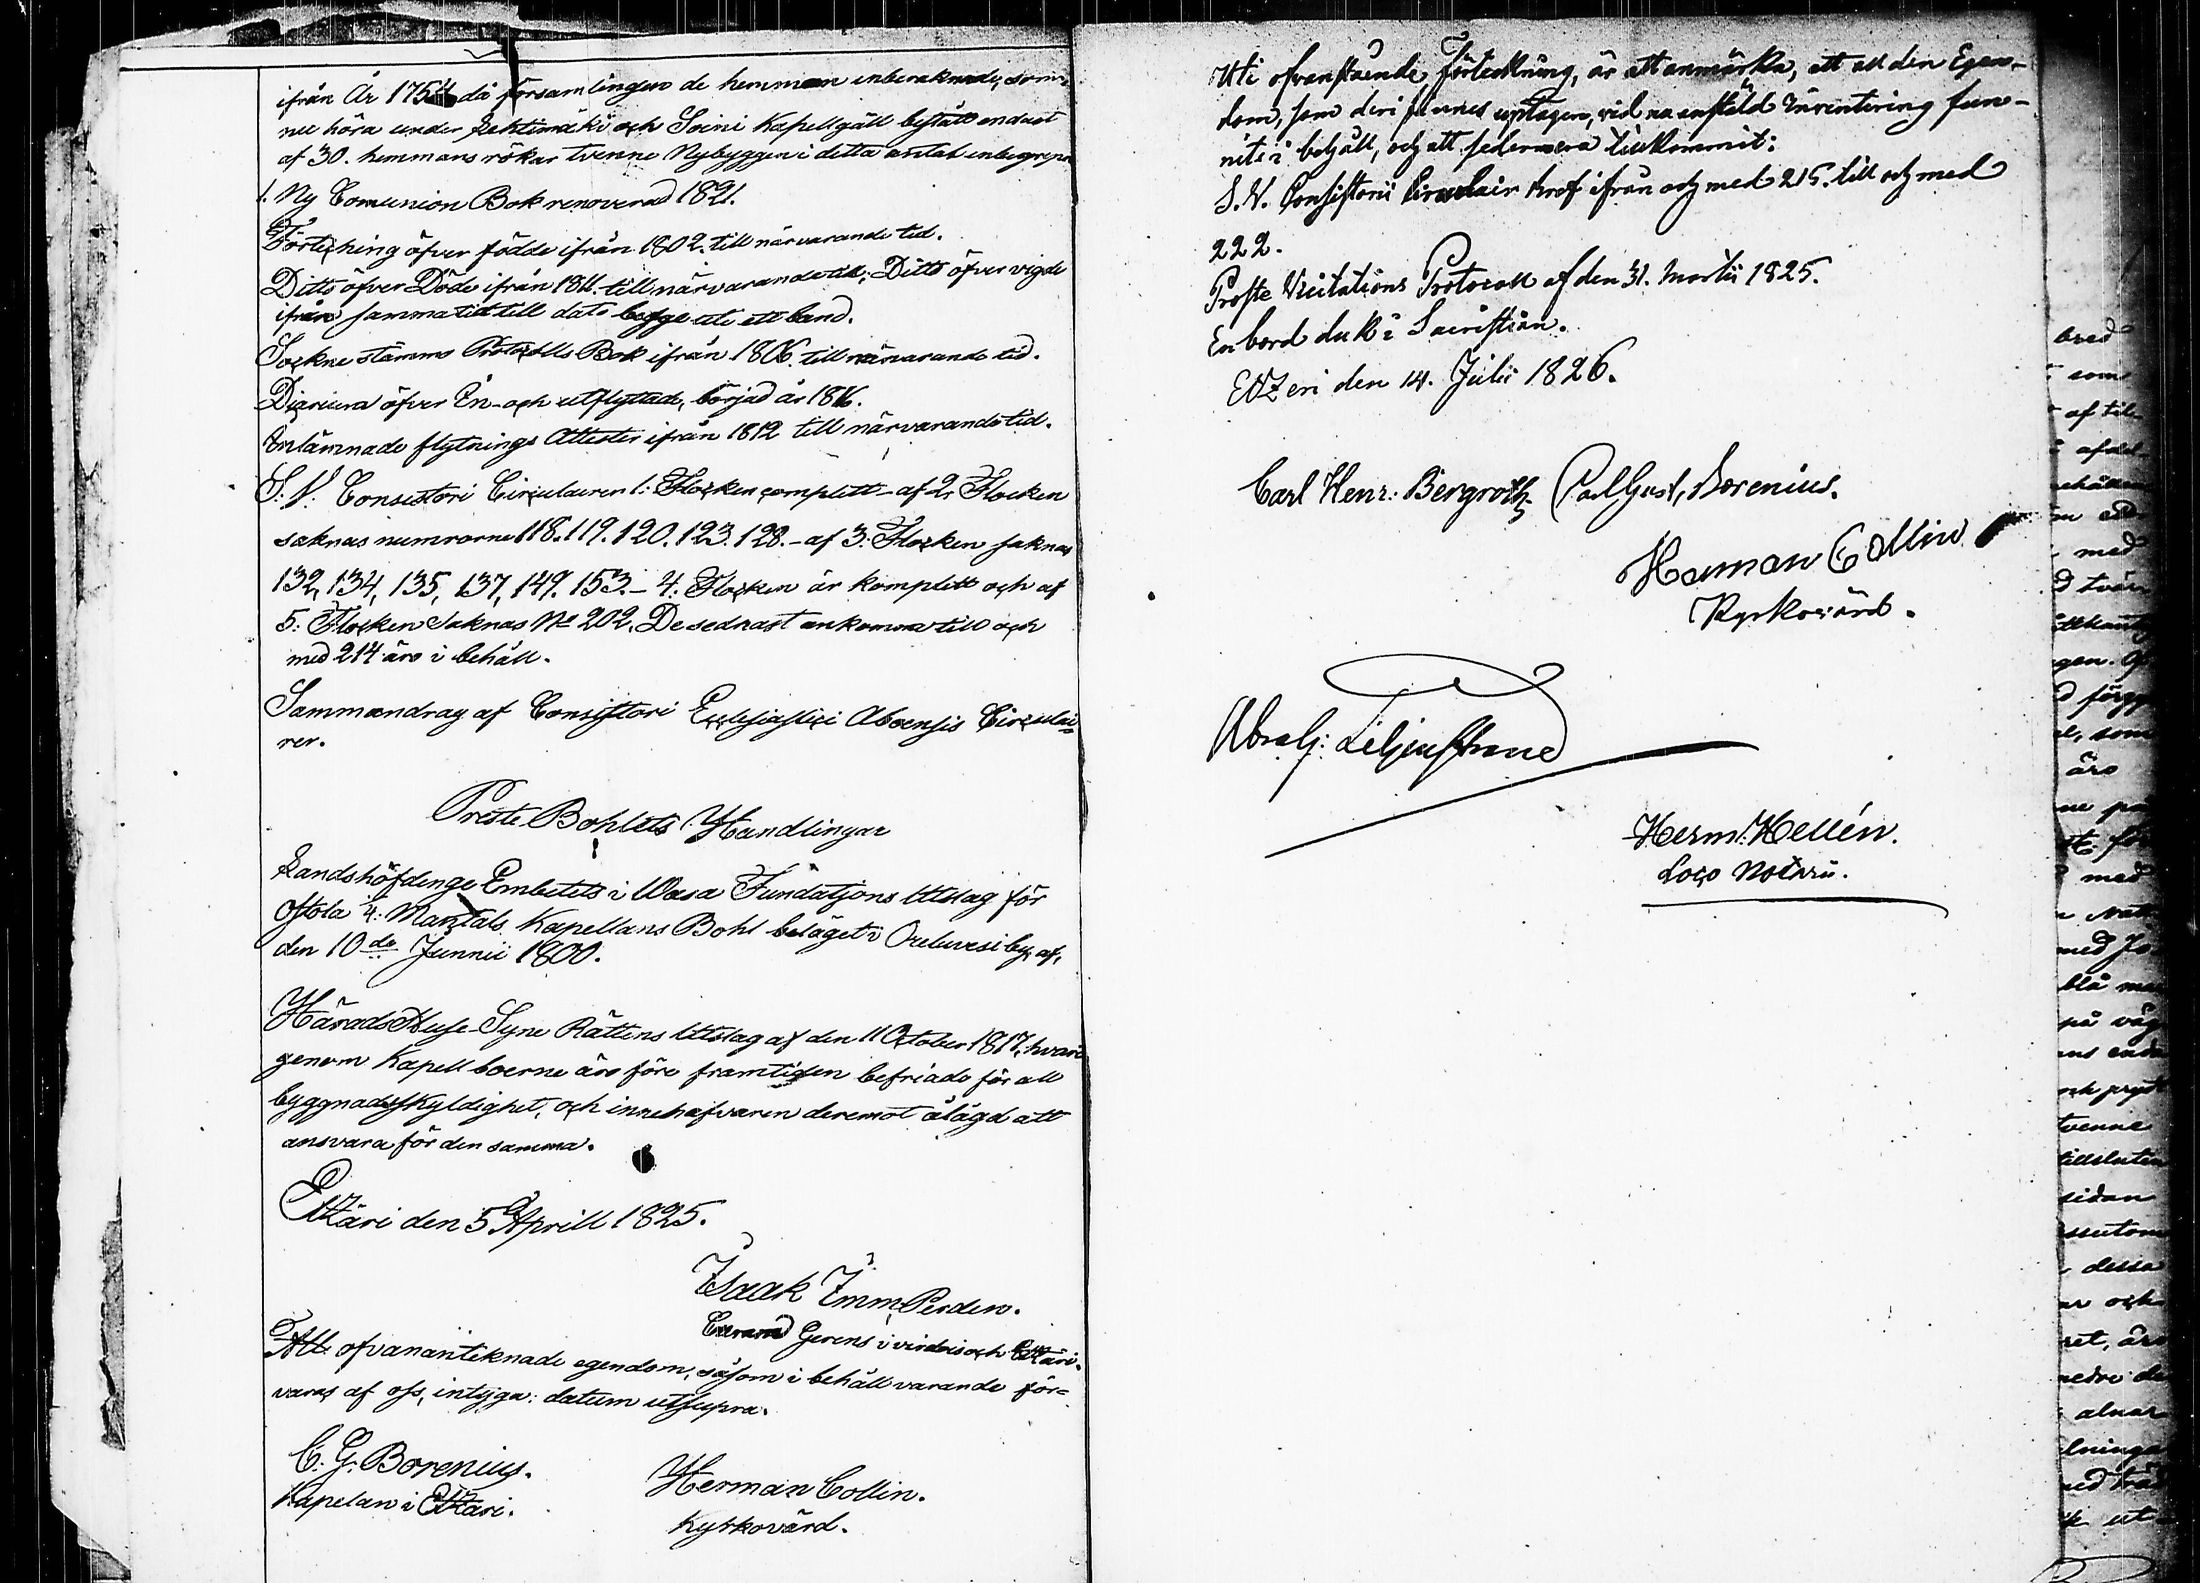 ifrån År 1754 då församlingen de hemman inberäknade, som
nu höra under Lehtimäki och Soini Kapellgäll bestått endast
af 30. hemmans rökar tvenne Nybyggen i detta antal inbegrepne
1. Ny Comunion Bok renoverad 1821.
Förteckning öfver födde ifrån 1802. till närvarande tid.
Ditto öfver Döde ifrån 1811. till närvarande tid; Ditto öfver vigde
ifrån samma tid till dato begge uti ett band.
Sockne stämmo Protocolls Bok ifrån 1806. till närvarande tid.
Diarium öfver In- och utflyttade, börjad år 1816.
Inlämnade flytnings Attester ifrån 1812 till närvarande tid.
S. V. Consistori Circulairen 1: Flocken complett - af 2. Flocken
saknas numrorne 118. 119. 120. 123. 128. - af 3: Flocken saknas
132, 134, 135, 137, 149. 153. - 4: Flocken är komplett och af
5: Flocken Saknas No 202. De sednast ankomna till och
med 214 äro i behåll.
Sammandrag af Consistori Ecclesiastici Aboensis Circulai=
rer.
Preste Bohlets Handlingar
Landshöfdinge Embetets i Wasa Fundations Utslag för
Ostola 4: Mantals Kapellans Bohl beläget i Oreluvesi by, af,
den 10 de Junii 1800.
Härads Huse-Syne Rättens Utslag af den 11 October 1817, hvari
genom Kapellboerne äro före framtiden befriade för all
byggnadsskyldighet, och innehafvaren deremot ålägd att
ansvara för den samma.
Etzäri den 5 Aprill 1825.
Isaak Imm. Perden.
Curam Gerens i virdois och Etzäri.
Att ofvananteknade egendom, såsom i behåll varande för=
varas af oss, intyga: datum utsupra.
C. G. Borenius.
Kapelan i Etzäri.
Herman Collin.
Kyrkovärd.
Uti ofvanstående Förteckning, är att anmärka, att all den Egen-
dom, som deri finnes uptagen, vid nu anställd Inventering fun-
nits i behåll, och att sedermera tillkommit:
S. V. Consistorii Circulair bref ifrån och med 215. till och med
222.
Proste Visitations Protocoll af den 31. Martii 1825.
En bord duk i Sacristian.
Etzeri den 14. Julii 1826.
Carl Henr: Bergroth Carl Gust. Borenius.
Herman Collin
Kyrkovärd.
Abrah: Liljenstrand
Herm: Hellén.
Loco Notarii.